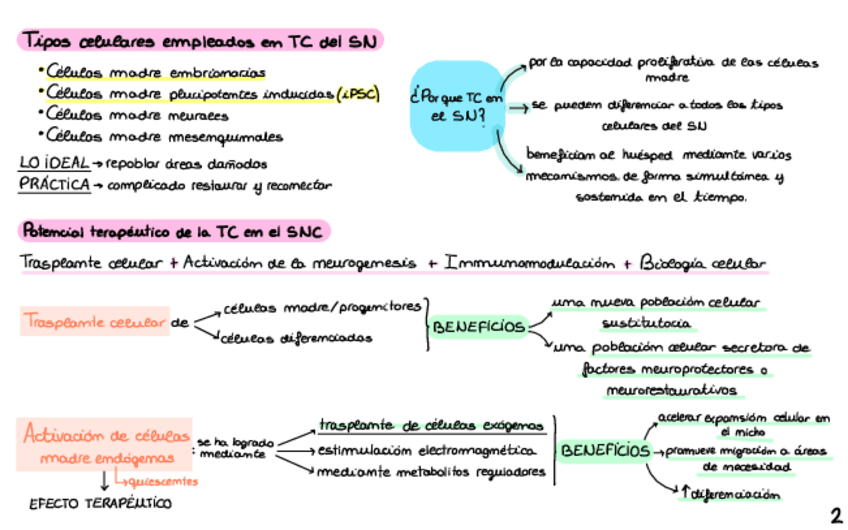 Tipos celulares empleados en TC del SN
• Células madre embrionarias
• Células madre pluripotentes inducidas (iPSC)
• Células madre neurales
• Células madre mesenquimales
LO IDEAL → repoblar áreas dañadas
PRÁCTICA → complicado restaurar y reconectar
¿Por que TC en
el SN?
por la capacidad proliferativa de las células
madre
se pueden diferenciar a todos los tipos
celulares del SN
benefician al huésped mediante varios
mecanismos de forma simultánea y
sostenida en el tiempo.
Potencial terapéutico de la TC en el SNC
Trasplante celular + Activación de la neurogenesis + Immunomodulación + Biología celular
Trasplante celular de
células madre/progenitores
células diferenciadas
BENEFICIOS
una nueva población celular
sustitutoria
una población celular secretora de
factores neuroprotectores o
neurorestaurativos
Activación de células
madre endógenas
↳ quiescentes
EFECTO TERAPÉUTICO
: se ha logrado
mediante
trasplante de células exógenas
estimulación electromagnética
mediante metabolitos reguladores
BENEFICIOS
acelerar expansión celular en
el nicho
promueve migración a áreas
de necesidad
↑ diferenciación
2